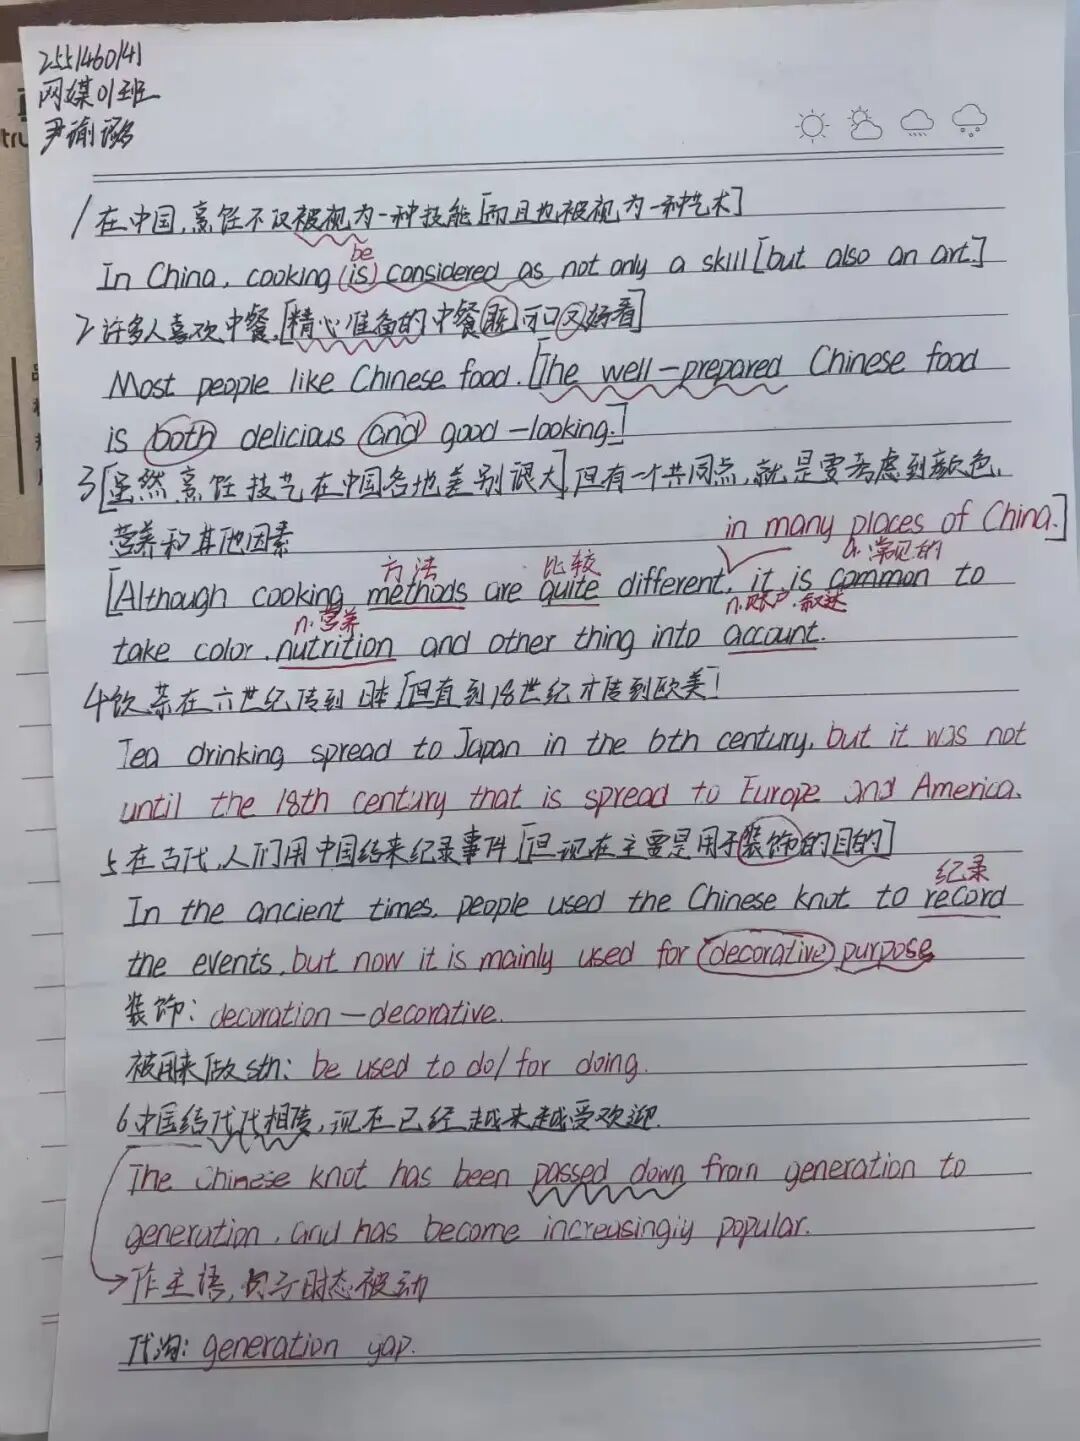 2551460141
网媒01班
尹瑜
tru
1 在中国,烹饪不仅被视为一种技能[而且也被视为一种艺术]
be
In China, cooking (is) considered as not only a skill [but also an art.]
2 许多人喜欢中餐,[精心准备的中餐既可口又好看]
Most people like Chinese food. [The well-prepared Chinese food
is both delicious and good-looking.]
3 [虽然烹饪技艺在中国各地差别很大]但有一个共同点,就是要考虑到颜色,
营养和其他因素
in many places of China.]
方法 比较 a.常见的
[Although cooking methods are quite different, it is common to
n.营养 n.账户.叙述
take color, nutrition and other thing into account.
4 饮茶在六世纪传到日本[但直到18世纪才传到欧美]
Tea drinking spread to Japan in the 6th century, but it was not
until the 18th century that is spread to Europe and America.
5 在古代,人们用中国结来纪录事件[但现在主要是用于装饰的目的]
纪录
In the ancient times, people used the Chinese knot to record
the events, but now it is mainly used for decorative purpose
装饰: decoration—decorative.
被用来做sth: be used to do/for doing.
6 中国结代代相传,现在已经越来越受欢迎.
The Chinese knot has been passed down from generation to
generation, and has become increasingly popular.
作主语,句子时态被动
代沟: generation gap.